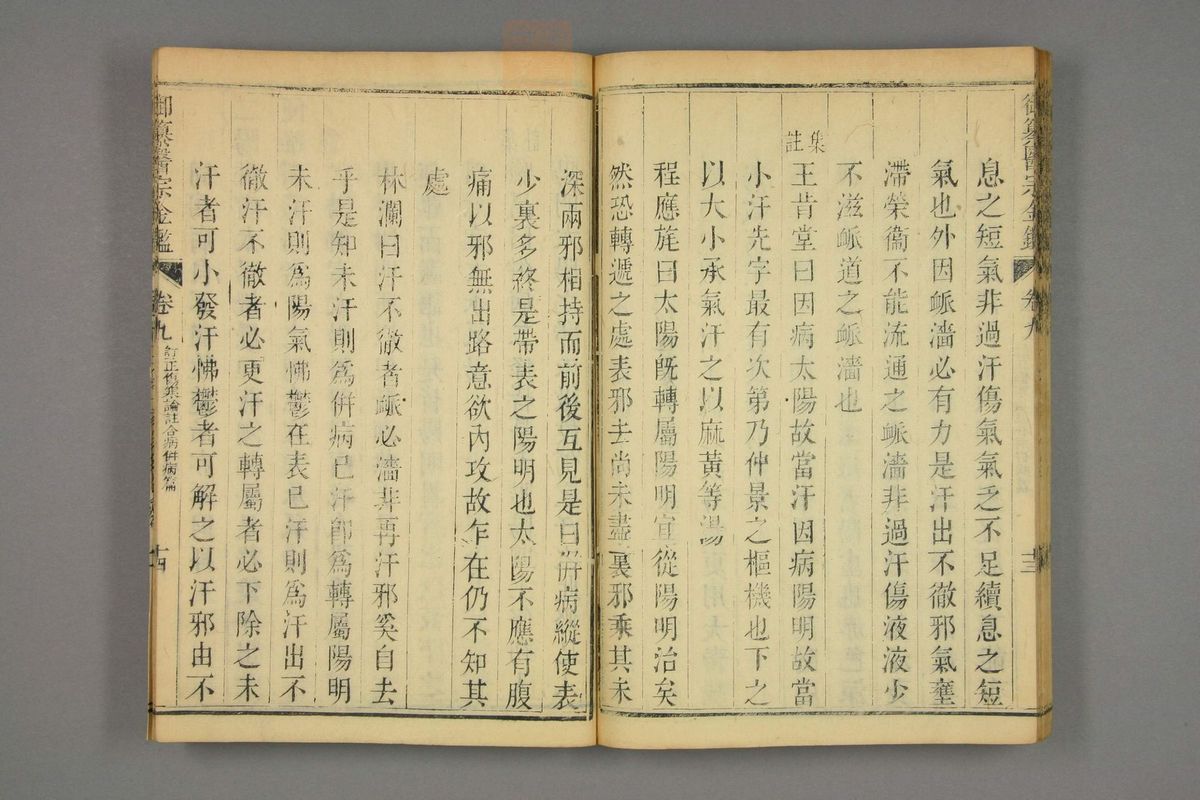 御纂醫宗金鑑 卷九
十三
息之短氣非過汗傷氣氣乏不足續息之短
氣也外因衇濇必有力是汗出不徹邪氣壅
滯榮衞不能流通之衇濇非過汗傷液液少
不滋衇道之衇濇也
集註
王肯堂曰因病太陽故當汗因病陽明故當
小汗先字最有次第乃仲景之樞機也下之
以大小承氣汗之以麻黃等湯
程應旄曰太陽旣轉屬陽明宜從陽明治矣
然恐轉遞之處表邪去尚未盡裏邪乘其未
深兩邪相持而前後互見是曰併病縱使表
少裏多終是帶表之陽明也太陽不應有腹
痛以邪無出路意欲內攻故乍在仍不知其
處
林瀾曰汗不徹者衇必濇非再汗邪奚自去
乎是知未汗則爲併病已汗卽爲轉屬陽明
未汗則爲陽氣怫鬱在表已汗則爲汗出不
徹汗不徹者必更汗之轉屬者必下除之未
汗者可小發汗怫鬱者可解之以汗邪由不
御纂醫宗金鑑 卷九 訂正傷寒論註合病併病篇
十四